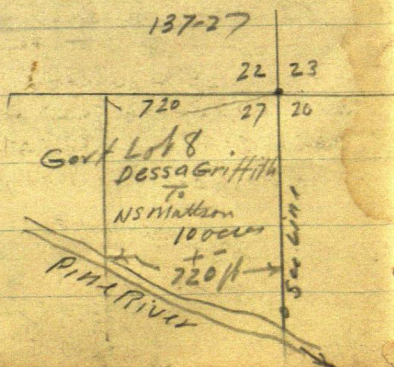 137-27
22 23
720 27 26
Govt Lot 8
Dessa Griffith
To
NS Mattson
10 acres
+-
720 ft
Sec Line
Pine River